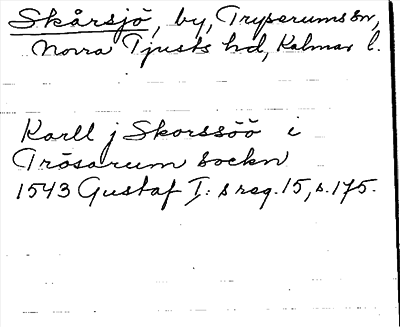 Skårsjö, by, Tryserums sn,
Norra Tjusts hd, Kalmar l.
Karll j Skorssöö i
Trösarum sockn
1543 Gustaf I: s reg. 15, s. 175.